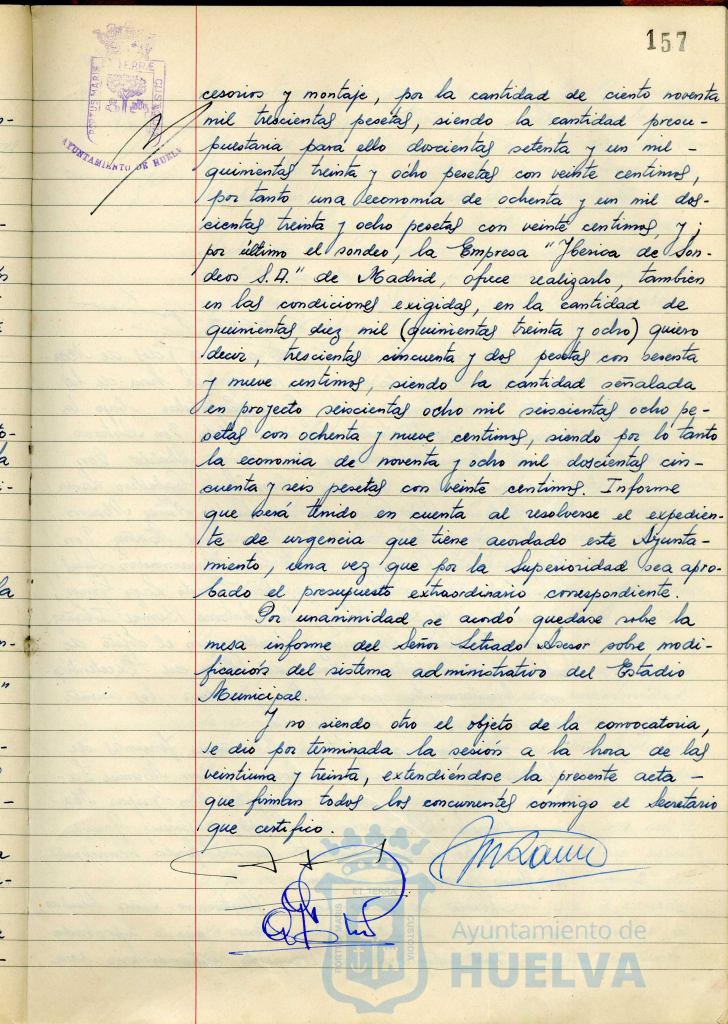 157
PORTUS MARIS
ET TERRE
CUSTODIA
AYUNTAMIENTO DE HUELVA
cesorios y montaje, por la cantidad de ciento noventa
mil trescientas pesetas, siendo la cantidad presu-
puestaria para ello doscientas setenta y un mil -
quinientas treinta y ocho pesetas con veinte centimos,
por tanto una economia de ochenta y un mil dos-
cientas treinta y ocho pesetas con veinte centimos, y,
por último el sondeo, la Empresa "Iberica de Son-
deos S.A." de Madrid, ofrece realizarlo, tambien
en las condiciones exigidas, en la cantidad de
quinientas diez mil (quinientas treinta y ocho) quiero
decir, trescientas cincuenta y dos pesetas con sesenta
y nueve centimos, siendo la cantidad señalada
en proyecto seiscientas ocho mil seiscientas ocho pe-
setas con ochenta y nueve centimos, siendo por lo tanto
la economia de noventa y ocho mil doscientas cin-
cuenta y seis pesetas con veinte centimos. Informe
que será tenido en cuenta al resolverse el expedien-
te de urgencia que tiene acordado este Ayunta-
miento, una vez que por la Superioridad sea apro-
bado el presupuesto extraordinario correspondiente.
Por unanimidad se acordó quedase sobre la
mesa informe del Señor Letrado Asesor sobre modi-
ficación del sistema administrativo del Estadio
Municipal.
Y no siendo otro el objeto de la convocatoria,
se dió por terminada la sesión a la hora de las
veintiuna y treinta, extendiéndose la presente acta -
que firman todos los concurrentes conmigo el Secretario
que certifico.
PORTUS MARIS
ET TERRAE
CUSTODIA
Ayuntamiento de
HUELVA